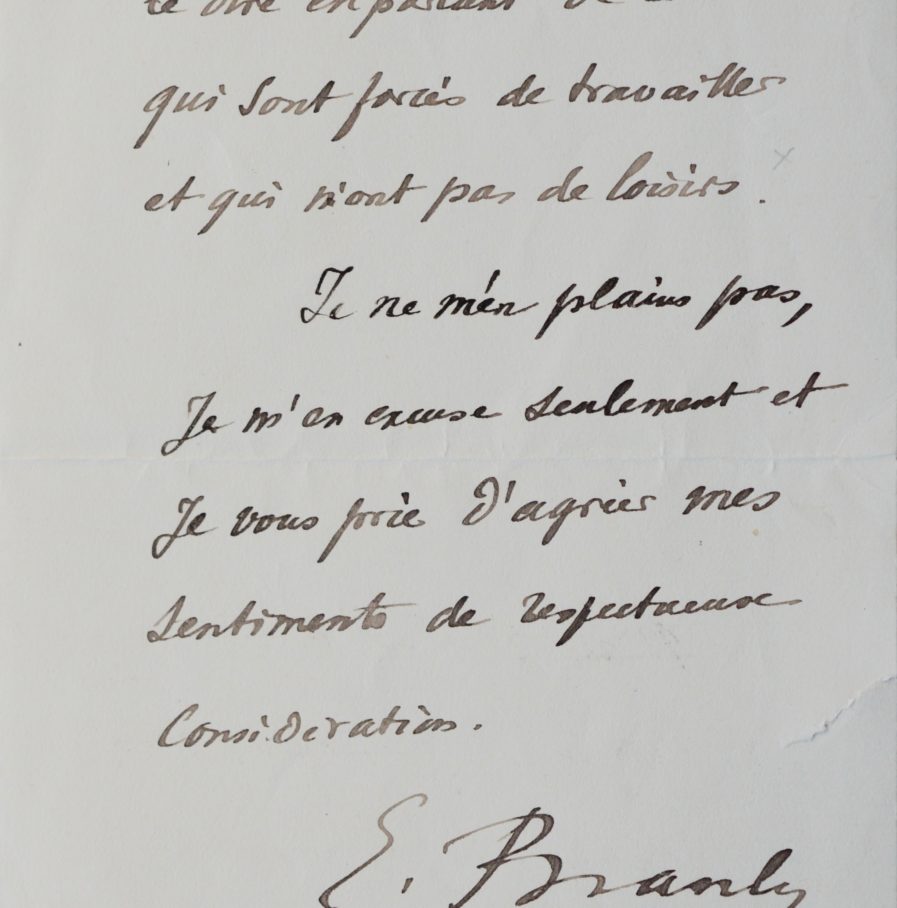 dire en parlant de
qui sont forcés de travailler
et qui n'ont pas de loisirs.
Je ne m'en plains pas,
Je m'en excuse seulement et
Je vous prie d'agréer mes
sentiments de respectueuse
Considération.
E. Branly